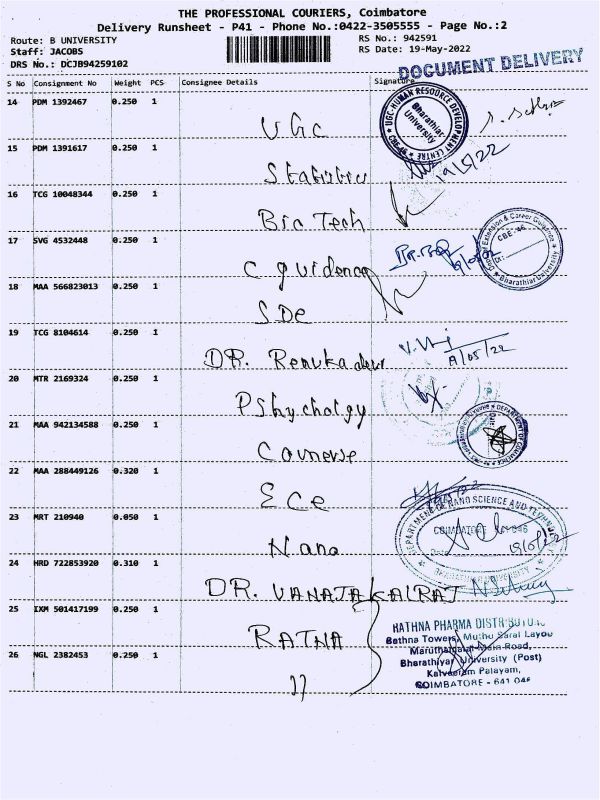 THE PROFESSIONAL COURIERS, Coimbatore
Delivery Runsheet - P41 - Phone No.:0422-3505555 - Page No.:2
Route: B UNIVERSITY
RS No.: 942591
Staff: JACOBS
RS Date: 19-May-2022
DRS No.: DCJB94259102
DOCUMENT DELIVERY
S No Consignment No Weight PCS Consignee Details Signature
14 PDM 1392467 0.250 1 UGC
UGC-HUMAN RESOURCE DEVELOPMENT CENTRE
Bharathiar University
19/5/22
15 PDM 1391617 0.250 1 Statistics
16 TCG 10048344 0.250 1 Bio Tech
17 SVG 4532448 0.250 1 C guidence
Extension & Career Guidance
CBE-46
Bharathiar University
18 MAA 566823013 0.250 1 SDE
19 TCG 8104614 0.250 1 DR. Renuka devi
/05/22
20 MTR 2169324 0.250 1 Pshychology
21 MAA 942134588 0.250 1
DEPARTMENT OF COMMERCE
22 MAA 288449126 0.320 1 ECE
23 MRT 210940 0.050 1 Nano
DEPARTMENT OF NANO SCIENCE AND TECHNOLOGY
COIMBATORE 641 046
24 HRD 722853920 0.310 1 DR. VANAJA KALRAJ
25 IXM 501417199 0.250 1 RATNA
26 NGL 2382453 0.250 1 "
RATHNA PHARMA DISTRIBUTORS
Bathna Towers, Muthu Saral Layou
Maruthamalai Main Road,
Bharathiyar University (Post)
Kalveeram Palayam,
COIMBATORE - 641 046